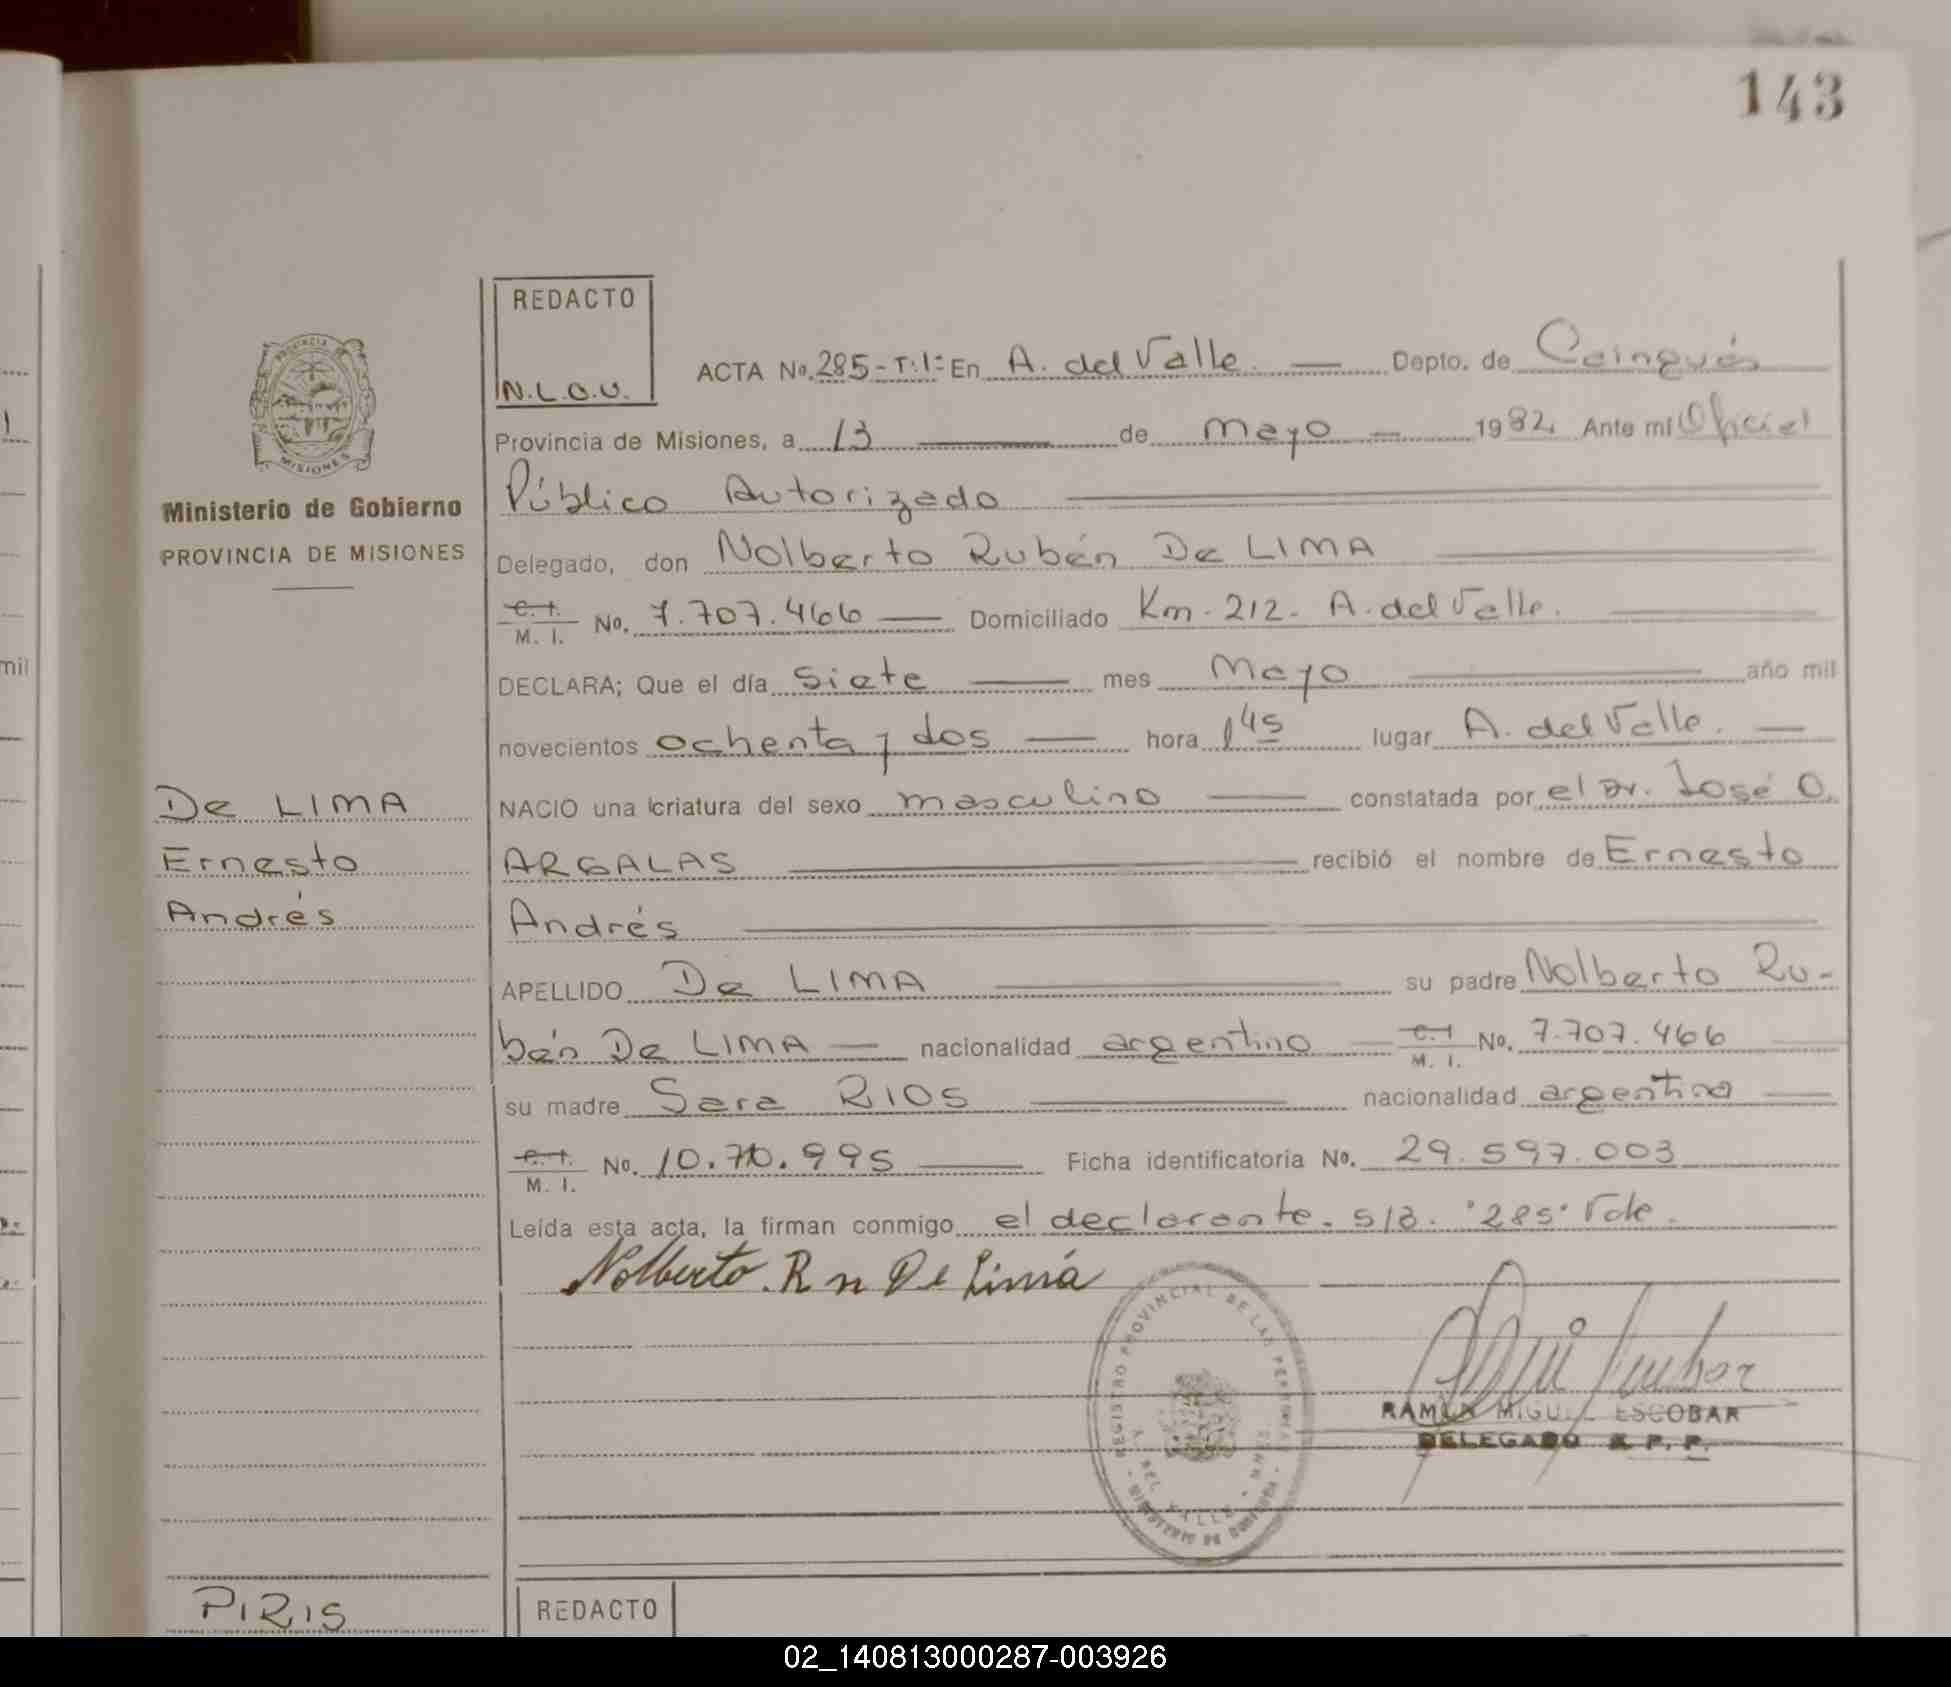 143
REDACTO
N.L.O.V.
ACTA No. 285-T:1: En A. del Valle Depto. de Cainguás
Provincia de Misiones, a 13 de mayo 1982. Ante mí Oficial
Público Autorizado
Ministerio de Gobierno
PROVINCIA DE MISIONES
Delegado, don Nolberto Rubén De LIMA
C. I. M. I. No. 7.707.466 Domiciliado Km-212- A. del Valle.
DECLARA; Que el día siete mes Mayo año mil
novecientos ochenta y dos hora 1 45 lugar A. del Valle.
NACIO una criatura del sexo masculino constatada por el Dr. José O.
ARGALAS recibió el nombre de Ernesto
Andrés
De LIMA
Ernesto
Andrés
APELLIDO De LIMA su padre Nolberto Ru-
bén De LIMA nacionalidad argentino C. I. M. I. No. 7.707.466
su madre Sara RIOS nacionalidad argentina
C. I. M. I. No. 10.70.995 Ficha identificatoria No. 29.597.003
Leída esta acta, la firman conmigo el declarante. S/B. "285" Vale.
Nolberto. R n De Lima
REGISTRO PROVINCIAL DE LAS PERSONAS
A. DEL VALLE
RAMON MIGUEL ESCOBAR
DELEGADO R. P. P.
PIRIS
REDACTO
mil
02_140813000287-003926